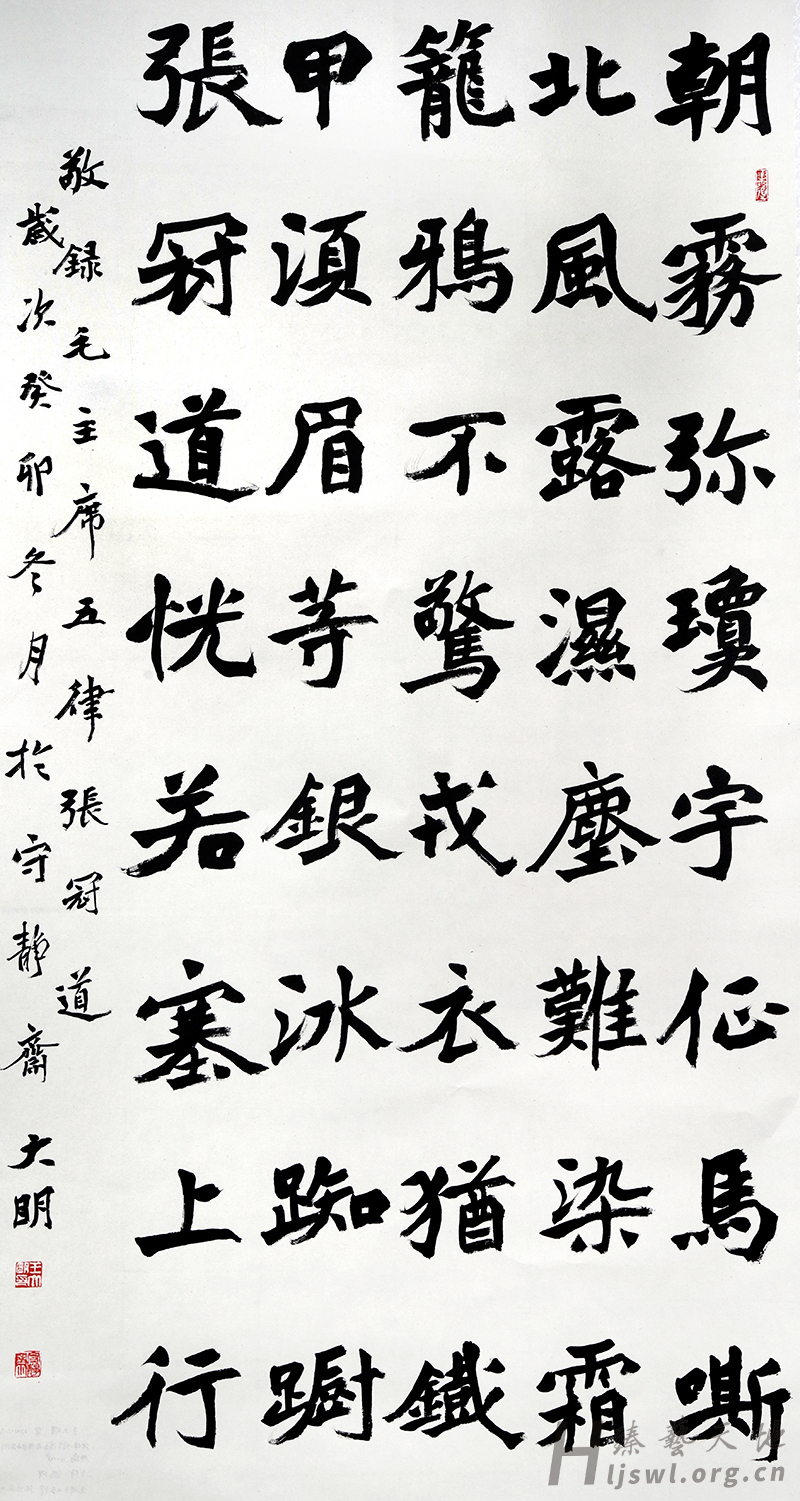 朝霧弥瓊宇征馬嘶
北風露濕塵難染霜
籠鴉不驚戎衣猶鐵
甲須眉等銀冰踟蹰
張冠道恍若塞上行
敬録毛主席五律張冠道
歲次癸卯冬月於守靜齋 大明
臻藝天地
ljswl.org.cn